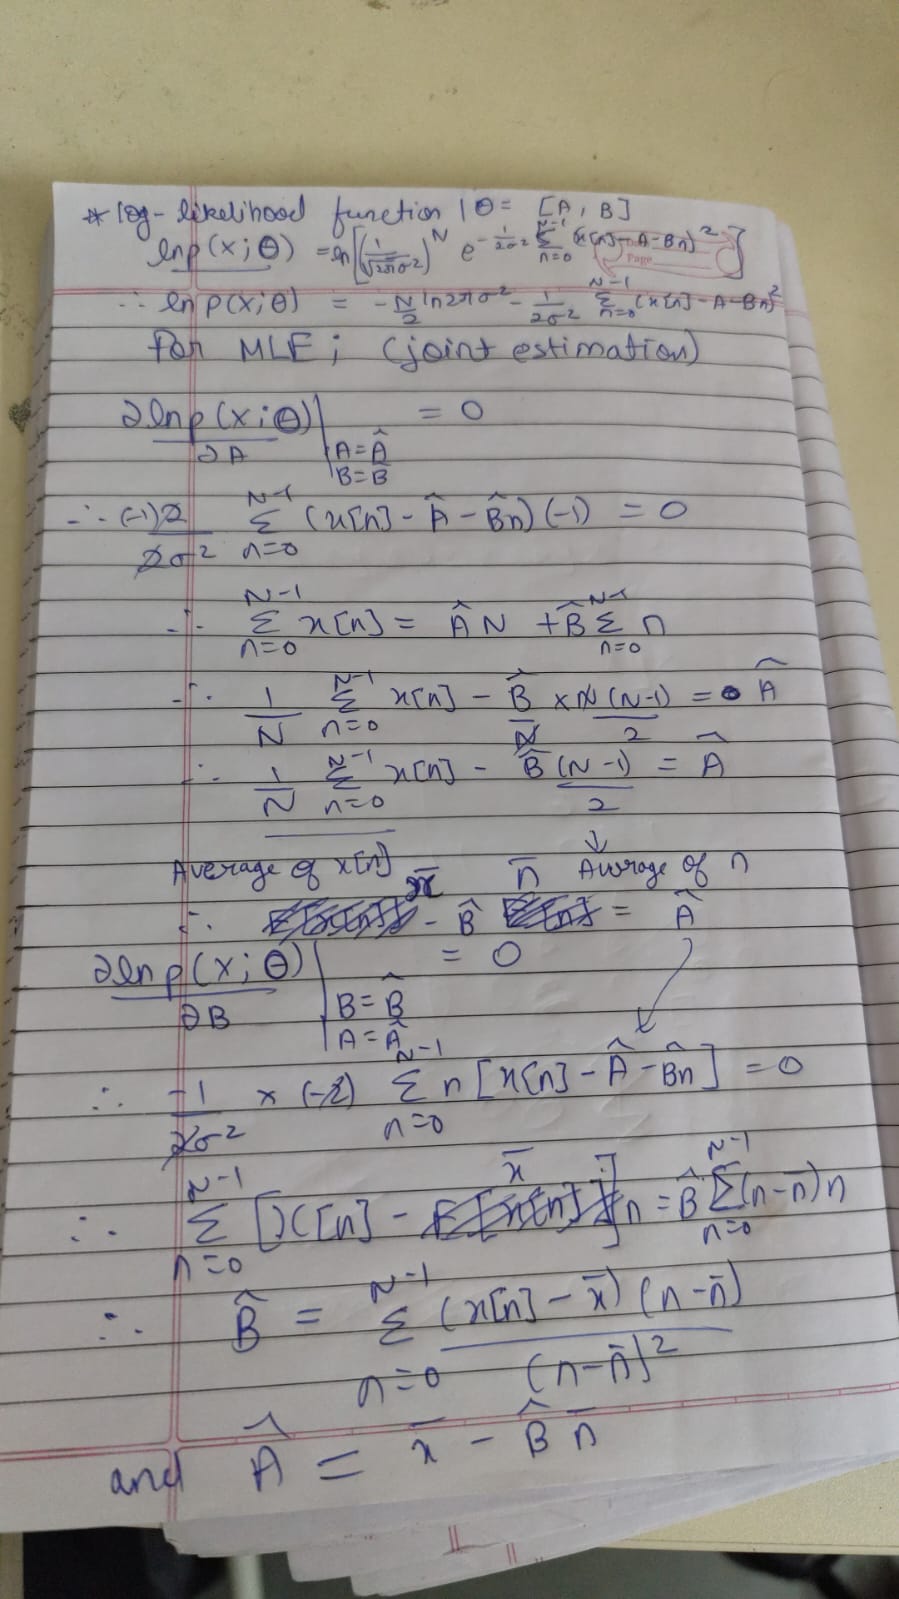 * log-likelihood function | θ = [A, B]
ln p(x;θ) = ln[(1/√2πσ²)^N e^{-1/2σ² Σ_{n=0}^{N-1} (x[n]-A-Bn)²}]
∴ ln p(x;θ) = -N/2 ln2πσ² - 1/2σ² Σ_{n=0}^{N-1} (x[n]-A-Bn)²
For MLE; (joint estimation)
∂ln p(x;θ)/∂A | A=Â B=B̂ = 0
∴ (-1)2/2σ² Σ_{n=0}^{N-1} (x[n]-Â-B̂n)(-1) = 0
∴ Σ_{n=0}^{N-1} x[n] = ÂN + B̂ Σ_{n=0}^{N-1} n
∴ 1/N Σ_{n=0}^{N-1} x[n] - B̂/N × N(N-1)/2 = Â
∴ 1/N Σ_{n=0}^{N-1} x[n] - B̂(N-1)/2 = Â
Average of x[n] Average of n
∴ x̄ - B̂ n̄ = Â
∂ln p(x;θ)/∂B | B=B̂ A=Â = 0
∴ -1/2σ² × (-2) Σ_{n=0}^{N-1} n[x[n]-Â-B̂n] = 0
∴ Σ_{n=0}^{N-1} [x[n] - x̄]n = B̂ Σ_{n=0}^{N-1} (n-n̄)n
∴ B̂ = Σ_{n=0}^{N-1} (x[n]-x̄)(n-n̄)/(n-n̄)²
and Â = x̄ - B̂n̄